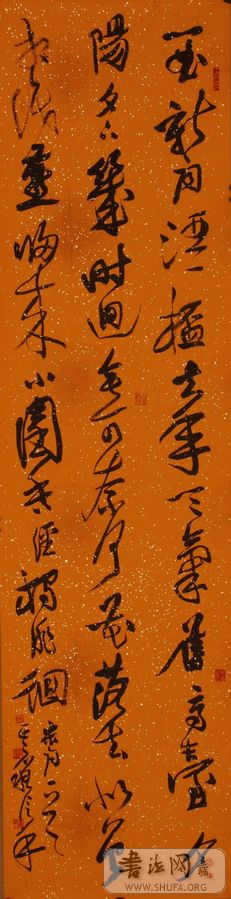 一曲新詞酒一杯去年天氣舊亭臺夕
陽西下幾時迴無可奈何花落去似曾
相識燕歸來小園香徑獨徘徊
书法网
WWW.SHUFA.ORG